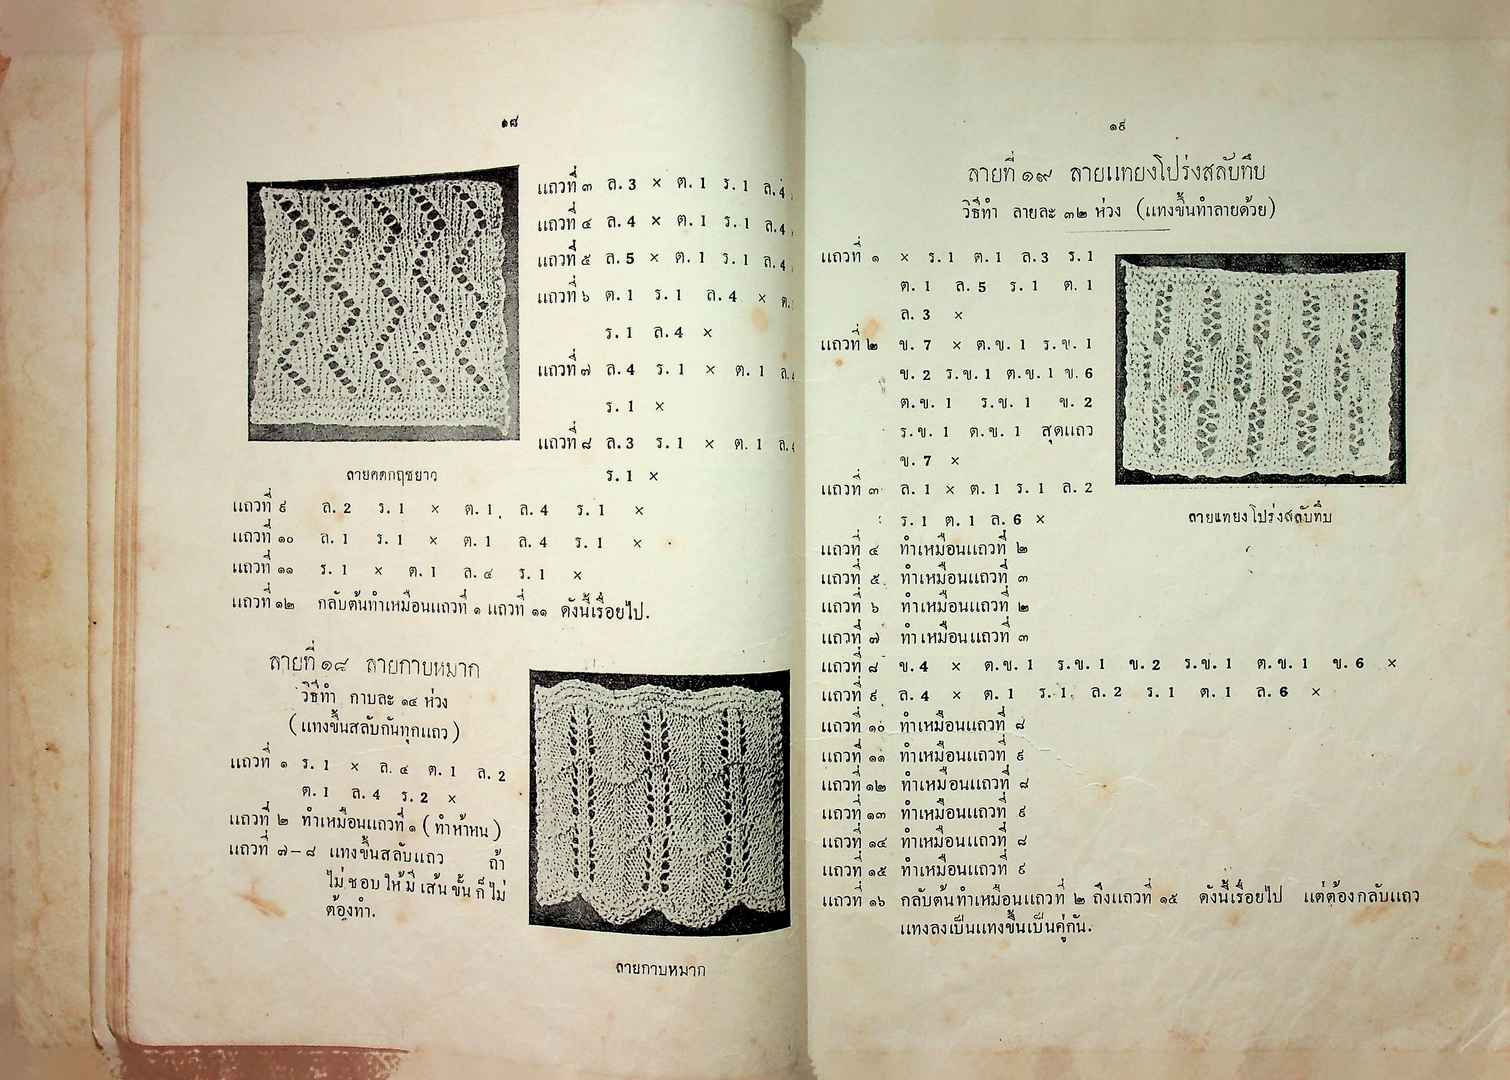 ๑๘
แถวที่ ๓ ล.3 × ต.1 ร.1 ล.4
แถวที่ ๔ ล.4 × ต.1 ร.1 ล.4
แถวที่ ๕ ล.5 × ต.1 ร.1 ล.4
แถวที่ ๖ ต.1 ร.1 ล.4 × ต.
ร.1 ล.4 ×
แถวที่ ๗ ล.4 ร.1 × ต.1 ล.
ร.1 ×
แถวที่ ๘ ล.3 ร.1 × ต.1 ล.
ร.1 ×
ลายคดกฤชยาว
แถวที่ ๙ ล.2 ร.1 × ต.1 ล.4 ร.1 ×
แถวที่ ๑๐ ล.1 ร.1 × ต.1 ล.4 ร.1 ×
แถวที่ ๑๑ ร.1 × ต.1 ล.๔ ร.1 ×
แถวที่ ๑๒ กลับต้นทำเหมือนแถวที่ ๑ แถวที่ ๑๑ ดังนี้เรื่อยไป.
ลายที่ ๑๘ ลายกาบหมาก
วิธีทำ กาบละ ๑๔ ห่วง
(แทงขึ้นสลับกันทุกแถว)
แถวที่ ๑ ร.1 × ล.๔ ต.1 ล.2
ต.1 ล.4 ร.2 ×
แถวที่ ๒ ทำเหมือนแถวที่ ๑ (ทำห้าหน)
แถวที่ ๗–๘ แทงขึ้นสลับแถว ถ้า
ไม่ชอบให้มีเส้นขั้นก็ไม่
ต้องทำ.
ลายกาบหมาก
๑๙
ลายที่ ๑๙ ลายแทยงโปร่งสลับทึบ
วิธีทำ ลายละ ๓๒ ห่วง (แทงขึ้นทำลายด้วย)
แถวที่ ๑ × ร.1 ต.1 ล.3 ร.1
ต.1 ล.5 ร.1 ต.1
ล.3 ×
แถวที่ ๒ ข.7 × ต.ข.1 ร.ข.1
ข.2 ร.ข.1 ต.ข.1 ข.6
ต.ข.1 ร.ข.1 ข.2
ร.ข.1 ต.ข.1 สุดแถว
ข.7 ×
แถวที่ ๓ ล.1 × ต.1 ร.1 ล.2
ร.1 ต.1 ล.6 ×
ลายแทยงโปร่งสลับทึบ
แถวที่ ๔ ทำเหมือนแถวที่ ๒
แถวที่ ๕ ทำเหมือนแถวที่ ๓
แถวที่ ๖ ทำเหมือนแถวที่ ๒
แถวที่ ๗ ทำเหมือนแถวที่ ๓
แถวที่ ๘ ข.4 × ต.ข.1 ร.ข.1 ข.2 ร.ข.1 ต.ข.1 ข.6 ×
แถวที่ ๙ ล.4 × ต.1 ร.1 ล.2 ร.1 ต.1 ล.6 ×
แถวที่ ๑๐ ทำเหมือนแถวที่ ๘
แถวที่ ๑๑ ทำเหมือนแถวที่ ๙
แถวที่ ๑๒ ทำเหมือนแถวที่ ๘
แถวที่ ๑๓ ทำเหมือนแถวที่ ๙
แถวที่ ๑๔ ทำเหมือนแถวที่ ๘
แถวที่ ๑๕ ทำเหมือนแถวที่ ๙
แถวที่ ๑๖ กลับต้นทำเหมือนแถวที่ ๒ ถึงแถวที่ ๑๕ ดังนี้เรื่อยไป แต่ต้องกลับแถว
แทงลงเป็นแทงขึ้นเป็นคู่กัน.